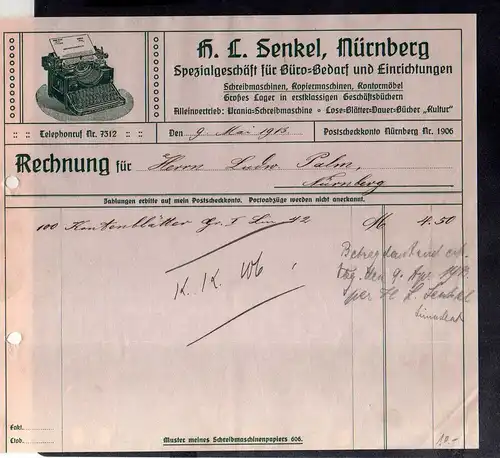 H. L. Senkel, Nürnberg
Spezialgeschäft für Büro-Bedarf und Einrichtungen
Schreibmaschinen, Kopiermaschinen, Kontormöbel
Großes Lager in erstklassigen Geschäftsbüchern
Alleinvertrieb: Urania-Schreibmaschine – Lose-Blätter-Dauer-Bücher „Kultur"
Telephonruf Nr. 7312
Den 9. Mai 1913.
Postscheckkonto Nürnberg Nr. 1906
Rechnung für Herrn Ludw. Palm,
Nürnberg
Zahlungen erbitte auf mein Postscheckkonto. Portoabzüge werden nicht anerkannt.
100 Kontenblätter Gr. I Lin 42 M 4.50
K. K. 106
Betrag dankend
den 9. 1913
per H. L. Senkel
Fakt.
Clob.
Muster meines Schreibmaschinenpapiers 606.